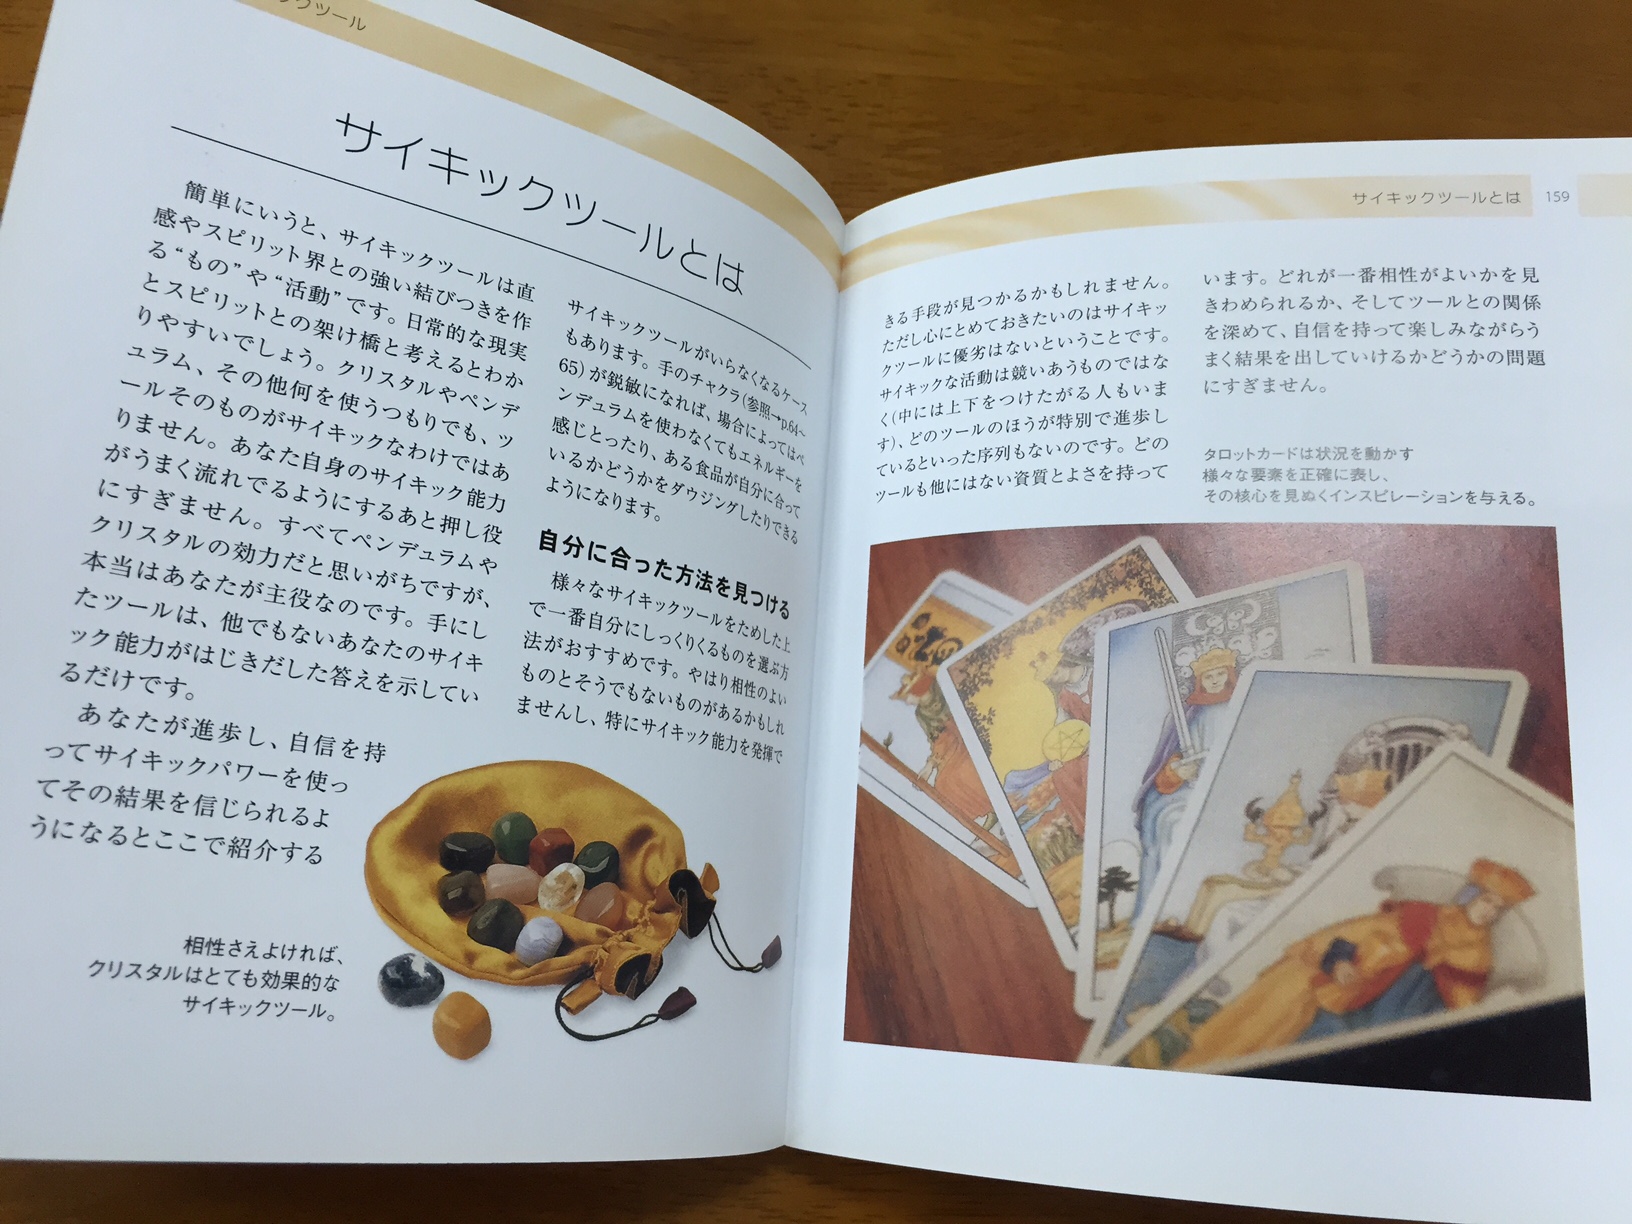 ックツール
サイキックツールとは
簡単にいうと、サイキックツールは直
感やスピリット界との強い結びつきを作
る“もの”や“活動”です。日常的な現実
とスピリットとの架け橋と考えるとわか
りやすいでしょう。クリスタルやペンデ
ュラム、その他何を使うつもりでも、ツ
ールそのものがサイキックなわけではあ
りません。あなた自身のサイキック能力
がうまく流れでるようにするあと押し役
にすぎません。すべてペンデュラムや
クリスタルの効力だと思いがちですが、
本当はあなたが主役なのです。手にし
たツールは、他でもないあなたのサイキ
ック能力がはじきだした答えを示してい
るだけです。
あなたが進歩し、自信を持
ってサイキックパワーを使っ
てその結果を信じられるよ
うになるとここで紹介する
サイキックツールがいらなくなるケース
もあります。手のチャクラ(参照→p.64〜
65)が鋭敏になれば、場合によってはペ
ンデュラムを使わなくてもエネルギーを
感じとったり、ある食品が自分に合って
いるかどうかをダウジングしたりできる
ようになります。
自分に合った方法を見つける
様々なサイキックツールをためした上
で一番自分にしっくりくるものを選ぶ方
法がおすすめです。やはり相性のよい
ものとそうでもないものがあるかもしれ
ませんし、特にサイキック能力を発揮で
相性さえよければ、
クリスタルはとても効果的な
サイキックツール。
サイキックツールとは 159
きる手段が見つかるかもしれません。
ただし心にとめておきたいのはサイキッ
クツールに優劣はないということです。
サイキックな活動は競いあうものではな
く(中には上下をつけたがる人もいま
す)、どのツールのほうが特別で進歩し
ているといった序列もないのです。どの
ツールも他にはない資質とよさを持って
います。どれが一番相性がよいかを見
きわめられるか、そしてツールとの関係
を深めて、自信を持って楽しみながらう
まく結果を出していけるかどうかの問題
にすぎません。
タロットカードは状況を動かす
様々な要素を正確に表し、
その核心を見ぬくインスピレーションを与える。